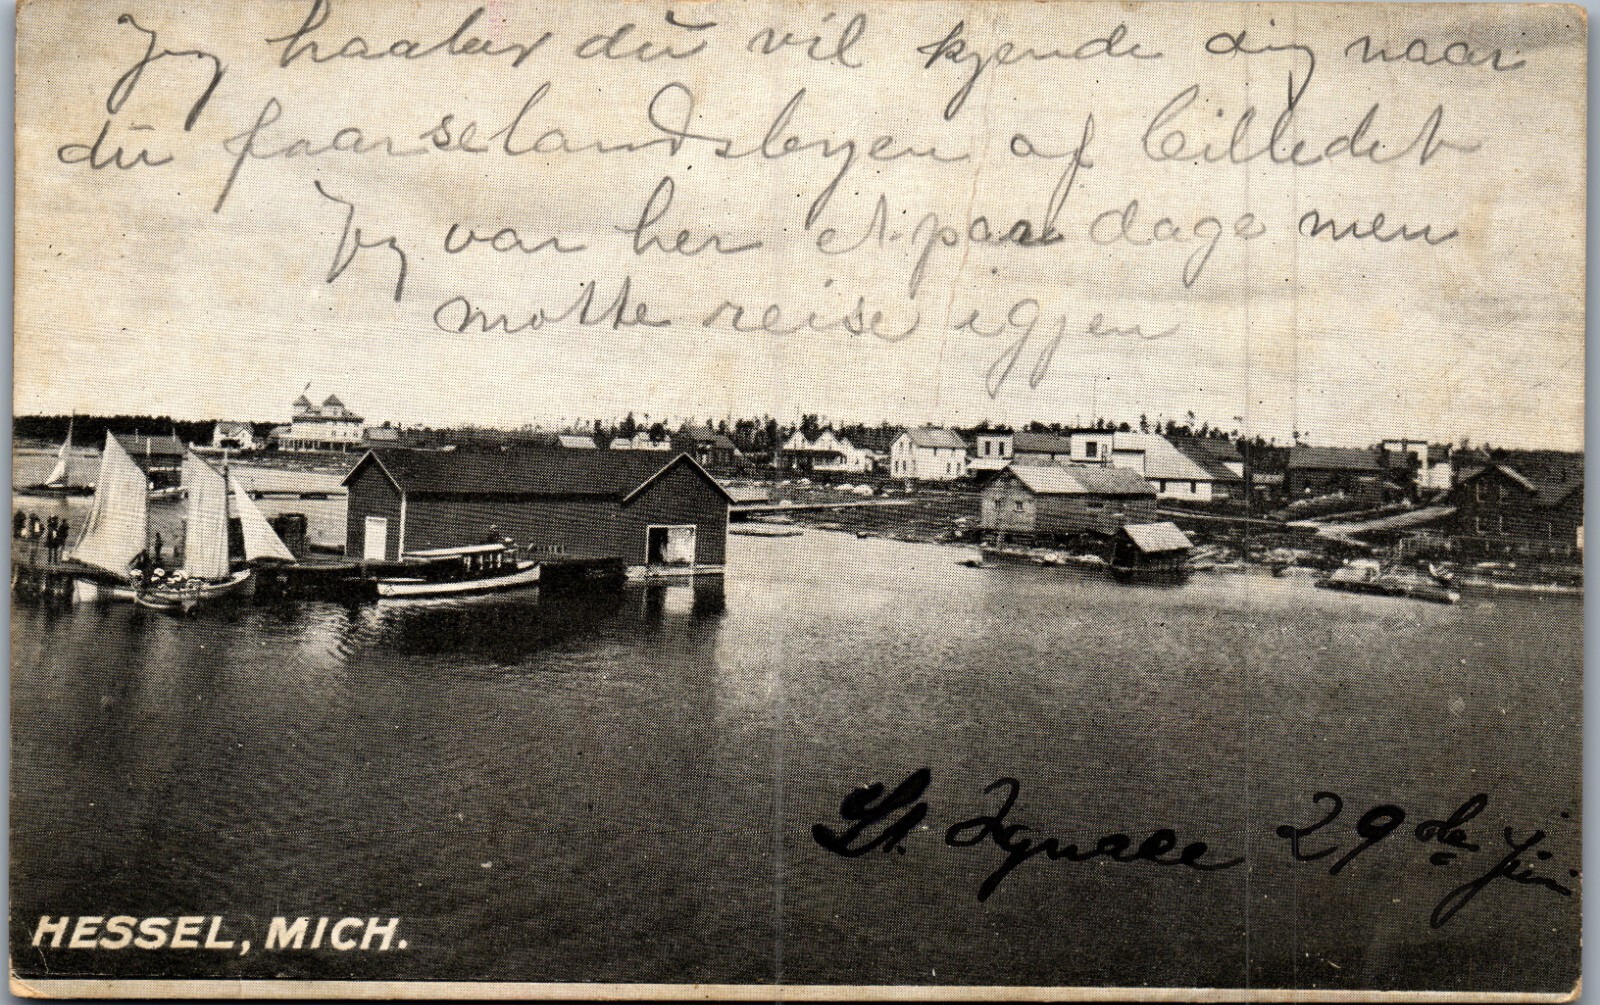 Jeg haaber du vil kjende dig naar
du faar se landsbyen af billedet
Jeg var her et par dage men
motte reise igjen
St. Ignace 29de Jüni
HESSEL, MICH.